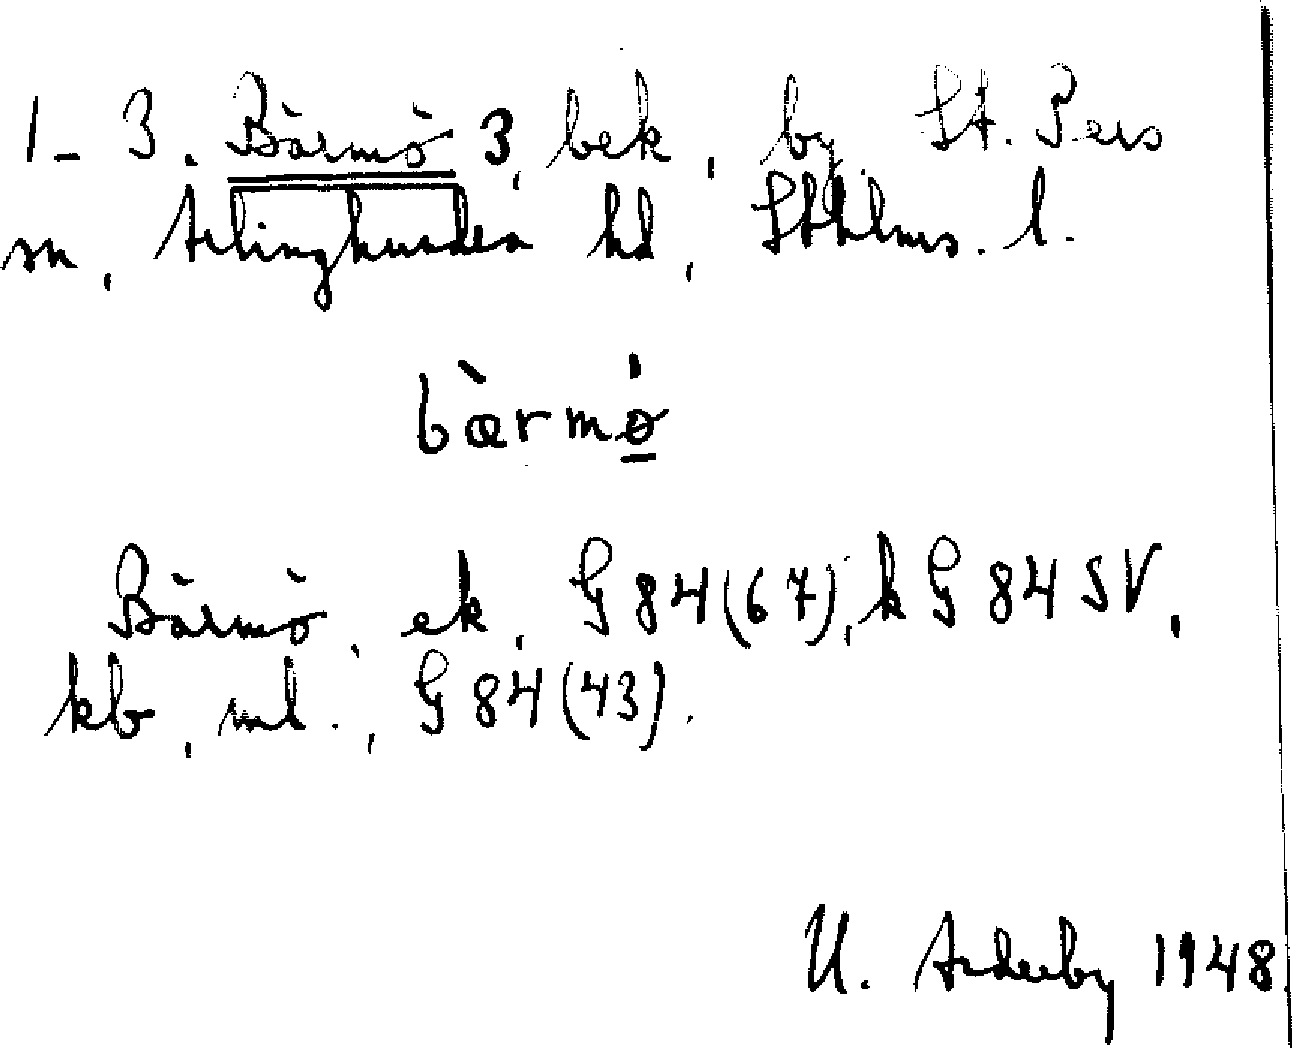 1-3. Bärmö 3, bek, by St. Pers
sn, Ärlinghundra hd, Sthlms. l.
bàrmø
Bärmö, ek, G 84(67), k G 84 SV,
kb, ml., G 84(43).
U. 1948.